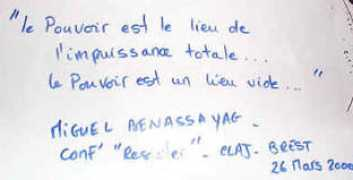 "le Pouvoir est le lieu de
l'impuissance totale...
le Pouvoir est un lieu vide..."
MiGUEL BENASSAYAG -
CONF' " " - CLAJ - BREST
26 Mars 2000